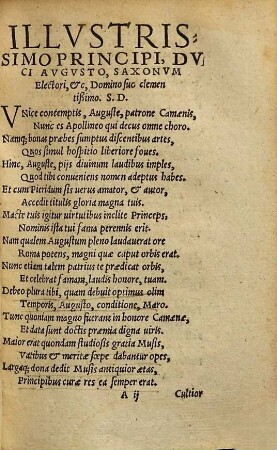 ILLVSTRIS-
SIMO PRINCIPI, DV
CI AVGVSTO, SAXONVM
Electori, &c, Domino suo clemen
tißimo. S. D.
VNice contemptis, Auguste, patrone Camœnis,
Nunc es Apollineo qui decus omne choro.
Namq; bonas præbes sumptus discentibus artes,
Quos simul hospitio liberiore foues.
Hinc, Auguste, pijs diuinum laudibus imples,
Quod tibi conueniens nomen adeptus habes.
Et cum Pieridum sis verus amator, & autor,
Accedit titulis gloria magna tuis.
Macte tuis igitur virtutibus inclite Princeps,
Nominis ista tui fama perennis erit.
Nam qualem Augustum pleno laudauerat ore
Roma potens, magni quæ caput orbis erat.
Nunc etiam talem patrius te prædicat orbis,
Et celebrat famam, laudis honore, tuam.
Debeo plura tibi, quam debuit optimus olim
Temporis, Augusto, conditione, Maro.
Tunc quoniam magno fuerant in honore Camœnæ,
Et data sunt doctis præmia digna viris.
Maior erat quondam studiosis gratia Musis,
Vatibus & meritæ sæpe dabantur opes,
Largaq; dona dedit Musis antiquior ætas,
Principibus curæ res ea semper erat.
A ij Cultior